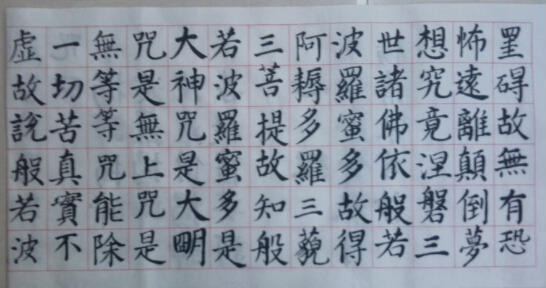 罣碍故無有恐
怖遠離顛倒夢
想究竟涅磐三
世諸佛依般若
波羅蜜多故得
阿耨多羅三藐
三菩提故知般
若波羅蜜多是
大神咒是大明
咒是無上咒是
無等等咒能除
一切苦真實不
虛故說般若波